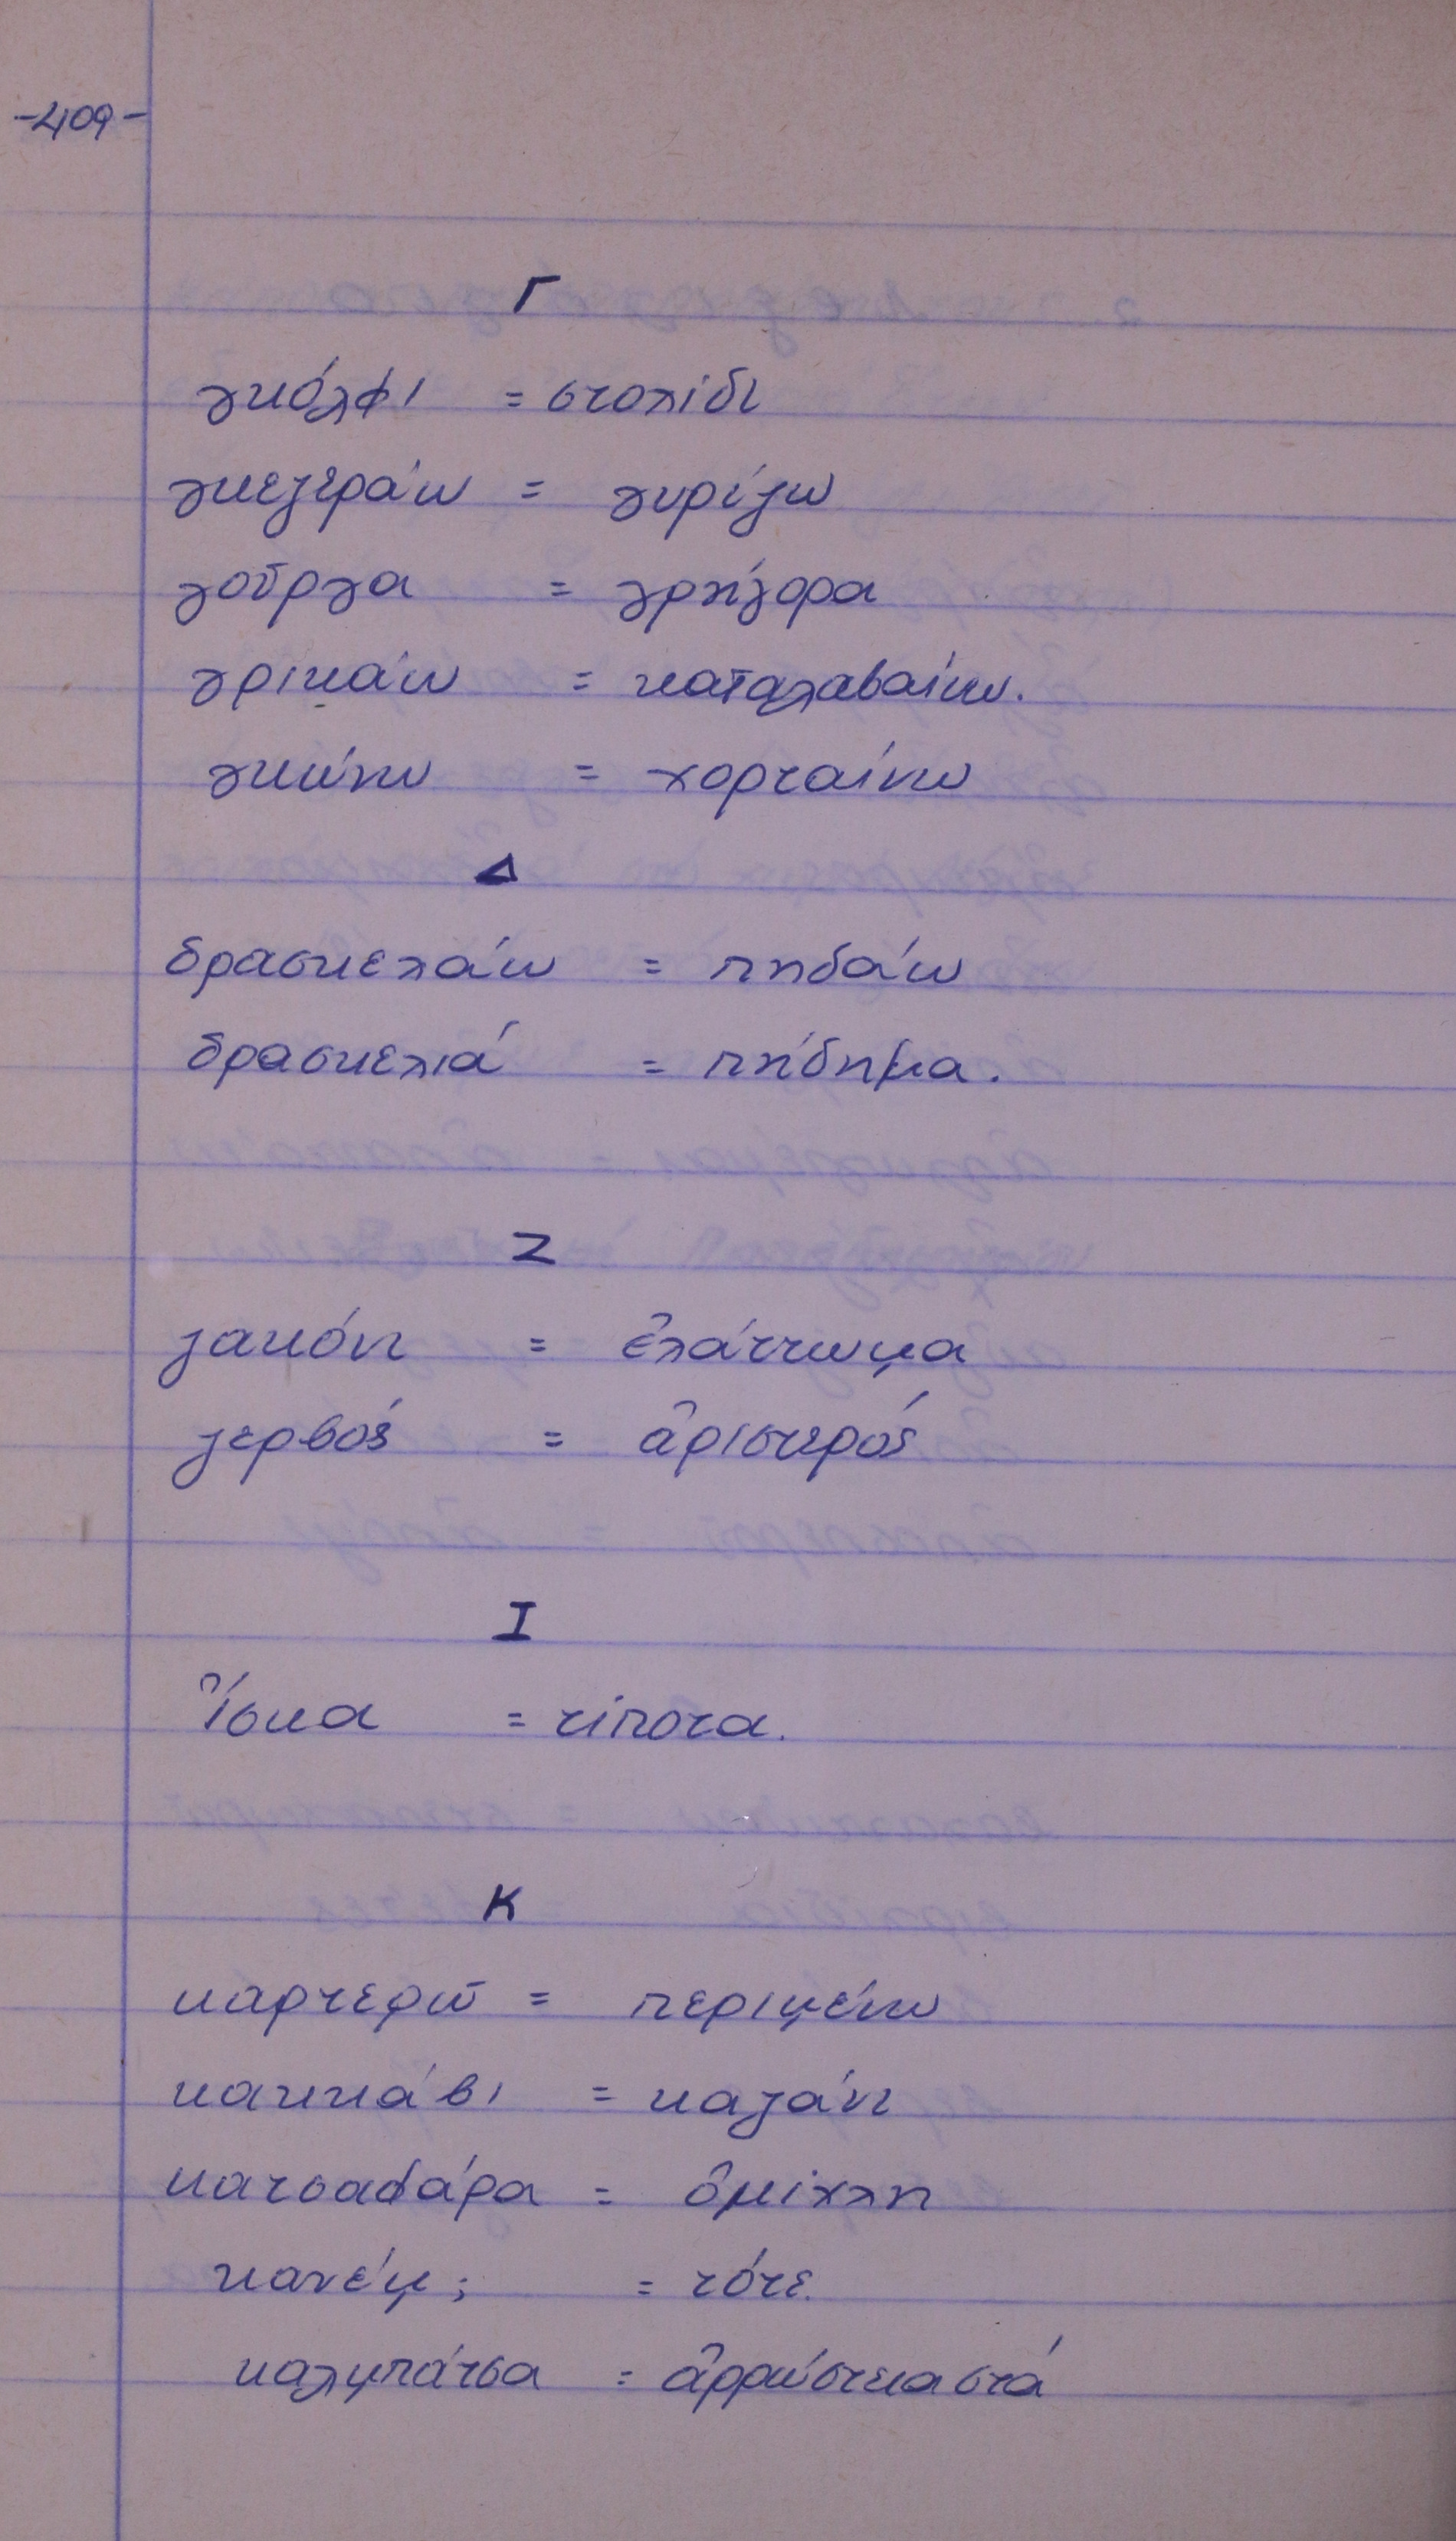 -409-
Γ
γκόλφι = στολίδι
γκεζεράω = γυρίζω
γοῦργα = γρήγορα
γρικάω = καταλαβαίνω.
γκώνω = χορταίνω
Δ
δρασκελάω = πηδάω
δρασκελιά = πήδημα.
Ζ
ζακόνι = ἐλάττωμα
ζερβός = ἀριστερός
Ι
Ἴσκα = τίποτα.
Κ
καρτερῶ = περιμένω
κακκάβι = καζάνι
κατσαφάρα = ὀμίχλη
κανέμ; = τότε.
καλμπάτσα = ἀρρώστεια στά